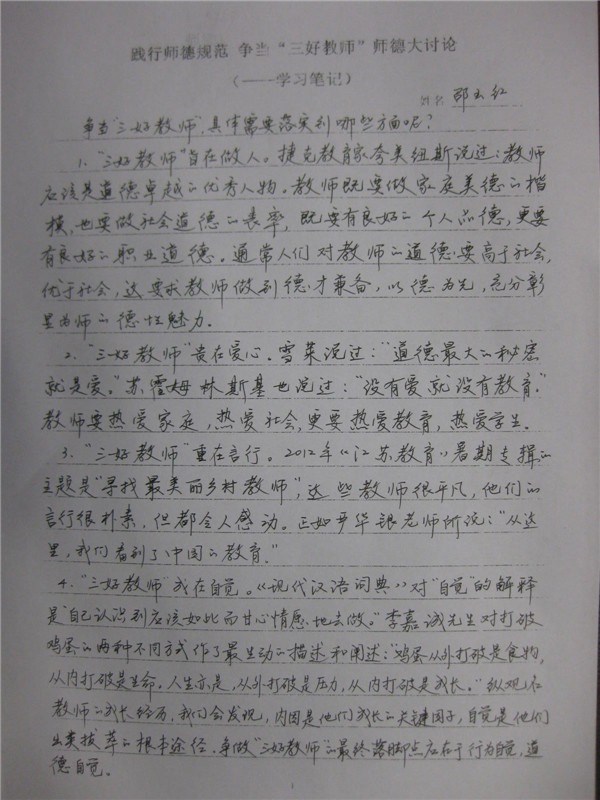 践行师德规范 争当“三好教师”师德大讨论
(——学习笔记)
姓名 邵玉红
争当“三好教师”,具体需要落实到哪些方面呢?
1.“三好教师”旨在做人。捷克教育家夸美纽斯说过:教师
应该是道德卓越的优秀人物。教师既要做家庭美德的楷
模,也要做社会道德的表率,既要有良好的个人品德,更要
有良好的职业道德。通常人们对教师的道德要高于社会,
优于社会,这要求教师做到德才兼备,以德为先,充分彰
显为师的德性魅力.
2.“三好教师”贵在爱心.雪莱说过:“道德最大的秘密
就是爱。”苏霍姆林斯基也说过:“没有爱就没有教育.”
教师要热爱家庭,热爱社会,更要热爱教育,热爱学生.
3.“三好教师”重在言行。2012年《江苏教育》暑期专辑的
主题是“寻找最美丽乡村教师”,这些教师很平凡,他们的
言行很朴素,但都令人感动。正如尹华银老师所说:“从这
里,我们看到了中国的教育.”
4.“三好教师”成在自觉。《现代汉语词典》对“自觉”的解释
是“自己认识到应该如此而甘心情愿地去做。”李嘉诚先生对打破
鸡蛋的两种不同方式作了最生动的描述和阐述:“鸡蛋从外打破是食物,
从内打破是生命.人生亦是,从外打破是压力,从内打破是成长。”纵观名
教师的成长经历,我们会发现,内因是他们成长的关键因子,自觉是他们
出类拔萃的根本途径.争做“三好教师”的最终落脚点应在于行为自觉,道
德自觉.
1